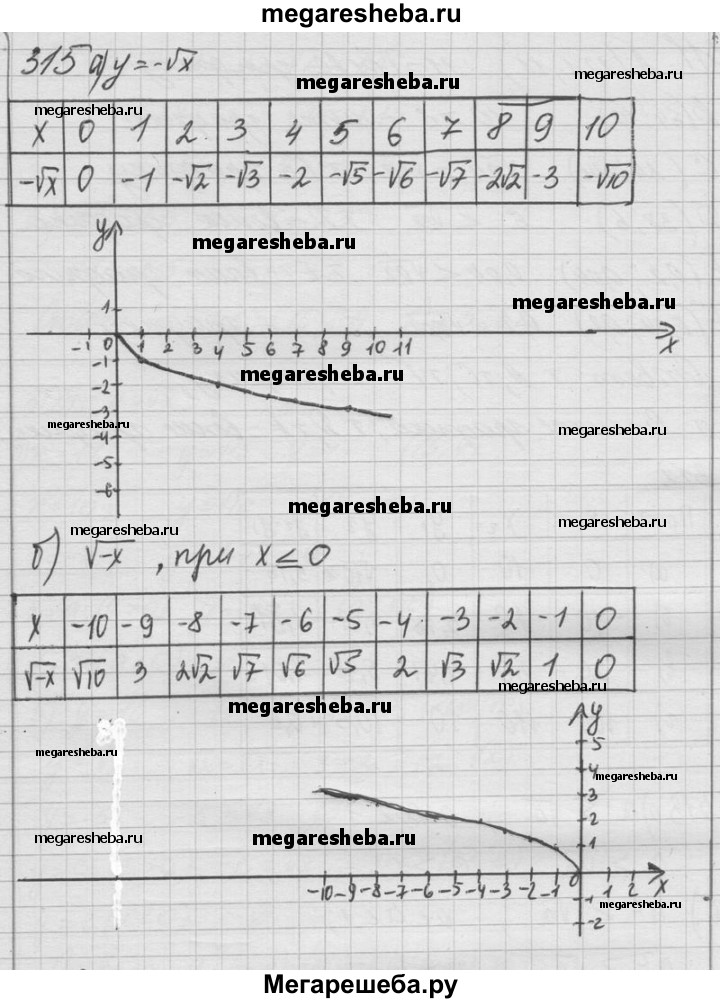 megaresheba.ru
315 а) y = -√x
megaresheba.ru
megaresheba.ru
megaresheba.ru
x 0 1 2 3 4 5 6 7 8 9 10
-√x 0 -1 -√2 -√3 -2 -√5 -√6 -√7 -2√2 -3 -√10
y
megaresheba.ru
megaresheba.ru
1
-1 0 1 2 3 4 5 6 7 8 9 10 11 x
-1
megaresheba.ru
-2
-3
megaresheba.ru
megaresheba.ru
-4
-5
-6
megaresheba.ru
megaresheba.ru
megaresheba.ru
б) √-x , при x ≤ 0
x -10 -9 -8 -7 -6 -5 -4 -3 -2 -1 0
√-x √10 3 2√2 √7 √6 √5 2 √3 √2 1 0
megaresheba.ru
megaresheba.ru
y
5
megaresheba.ru
4
megaresheba.ru
3
2
megaresheba.ru
megaresheba.ru
1
-10 -9 -8 -7 -6 -5 -4 -3 -2 -1 0 1 2 x
-1
megaresheba.ru
-2
Мегарешеба.ру